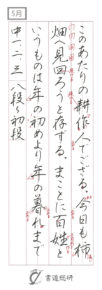 5月
このあたりの耕作人でござる。今日も柿
畑へ見回ろうと存ずる。まことに百姓と
いうものは年の初めより年の暮れまで
中一・二・三 八段〜初段
書道総研